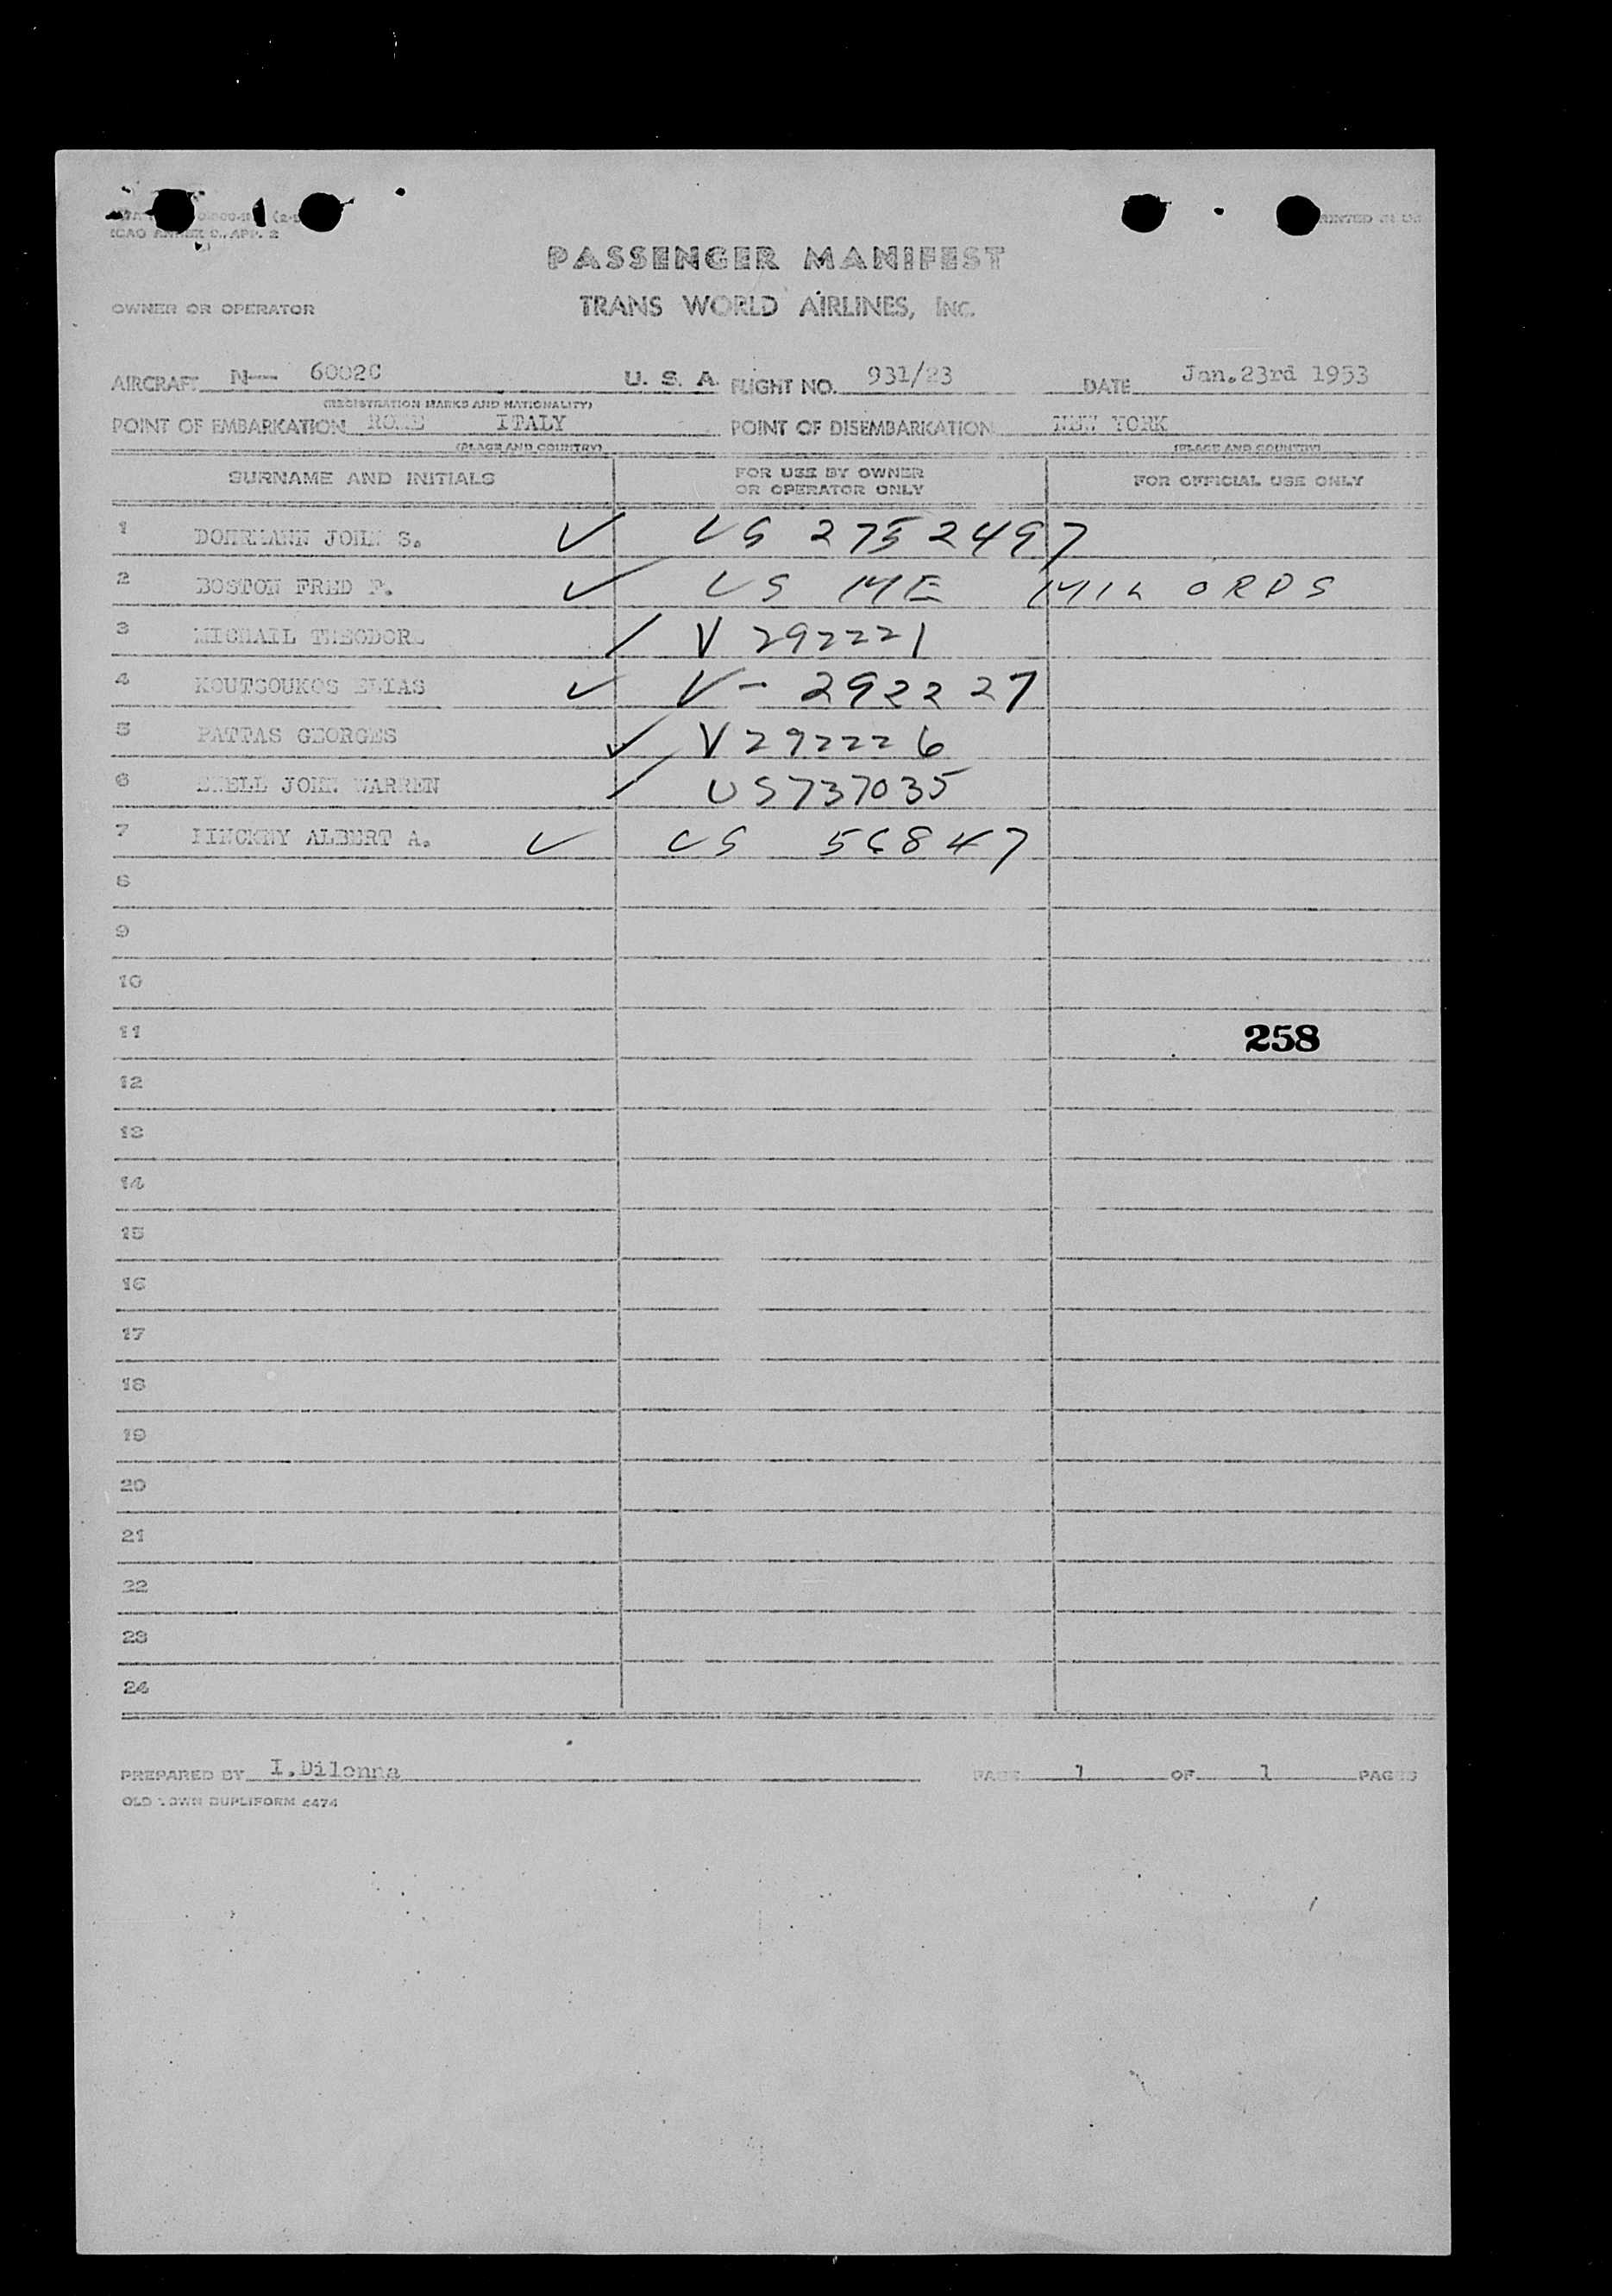 ICAO ANNEX 9., APP. 2
PRINTED IN US
PASSENGER MANIFEST
OWNER OR OPERATOR TRANS WORLD AIRLINES, INC.
AIRCRAFT N— 6002C U. S. A. FLIGHT NO. 931/23 DATE Jan.23rd 1953
(REGISTRATION MARKS AND NATIONALITY)
POINT OF EMBARKATION ROME ITALY POINT OF DISEMBARKATION NEW YORK
(PLACE AND COUNTRY) (PLACE AND COUNTRY)
SURNAME AND INITIALS FOR USE BY OWNER OR OPERATOR ONLY FOR OFFICIAL USE ONLY
1 DOHRMANN JOHN S. ✓ US 2752497
2 BOSTON FRED P. ✓ US ME MIL ORDS
3 MICHAIL THEODORE / V 292221
4 KOUTSOUKOS ELIAS ✓ V- 292227
5 PATTAS GEORGES ✓ V292226
6 JOHN WARREN / US737035
7 PINCKNY ALBERT A. ✓ US 56847
8
9
10
11 258
12
13
14
15
16
17
18
19
20
21
22
23
24
PREPARED BY I.Dilonna PAGE 1 OF 1 PAGES
OLD TOWN DUPLIFORM 4474